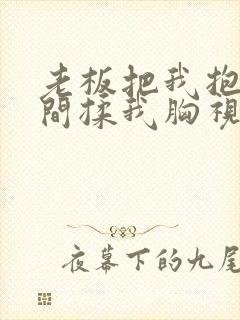 老板把我抱
間揉我胸視
夜幕下的九尾